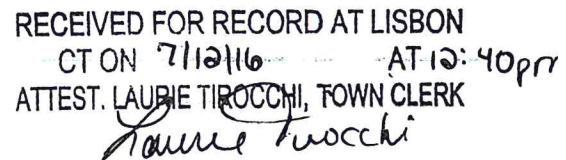 RECEIVED FOR RECORD AT LISBON
CT ON 7/12/16 AT 12:40pm
ATTEST. LAURIE TIROCCHI, TOWN CLERK
Laurie Tirocchi